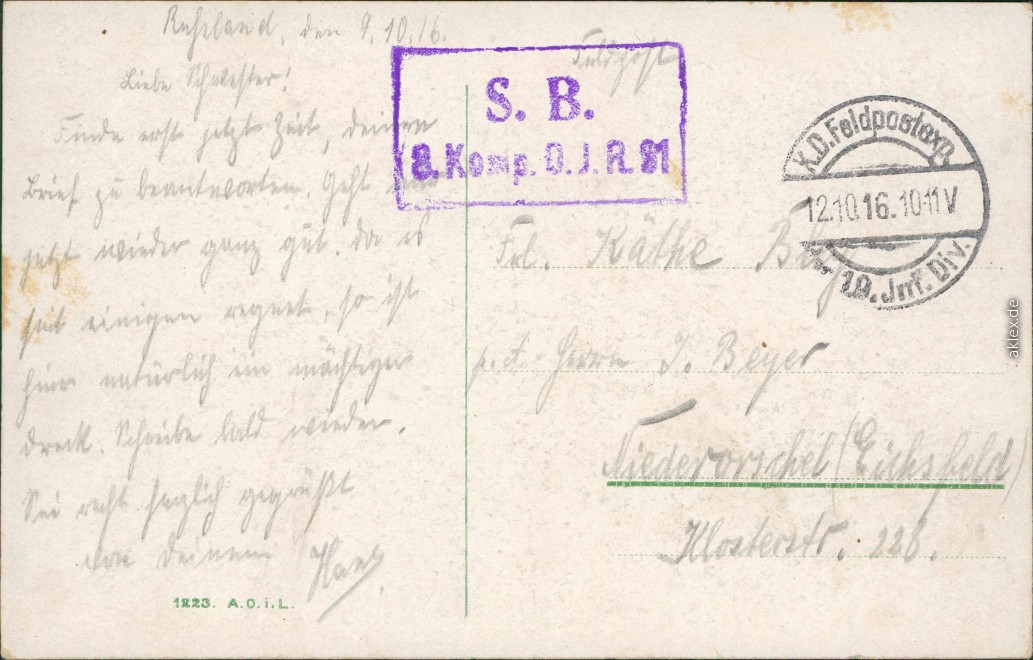 Rußland, den 9.10.16.
Liebe Schwester!
Finde erst jetzt Zeit, deinen
Brief zu beantworten. Geht mir
jetzt wieder ganz gut. da es
seit einigen regnet, so ist
hier natürlich ein mächtiger
dreck. Schreibe bald wieder.
Sei recht herzlich gegrüßt
von deinem Hans
1223. A.O.i.L.
Feldpost
S. B.
8. Komp. O. J. R. 81
K.D.Feldpostexp.
12.10.16.10-11V
19. Jnf. Div.
Frl. Käthe
Herrn J. Beyer
Niederorschel (Eichsfeld)
Klosterstr. 226.
aklex.de